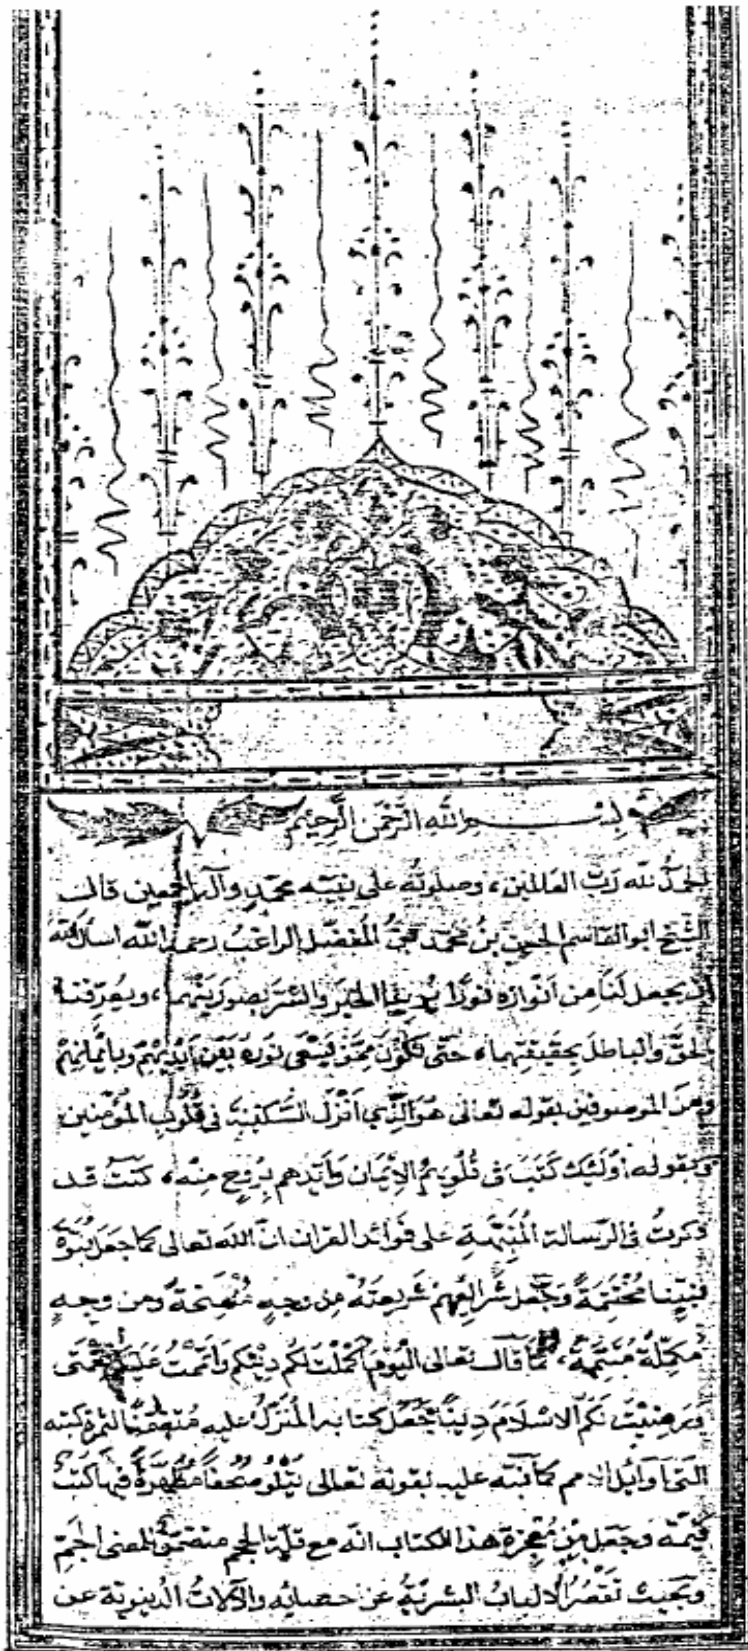 بسم الله الرحمن الرحيم
الحمد لله رب العالمين، وصلوته على نبيه محمد وآله اجمعين قال
الشيخ ابو القاسم الحسين بن محمد بن المفضل الراغب رحمه الله اسأل الله
ان يجعل لنا من انواره نورا يرينا الخير والشر بصورتيهما، ويعرفنا
الحق والباطل بحقيقتهما، حتى نكون ممن يسعى نوره بين ايديهم وبايمانهم
ومن الموصوفين بقوله تعالى هو الذي انزل السكينة في قلوب المؤمنين
وبقوله اولئك كتب في قلوبهم الايمان وايدهم بروح منه، كنت قد
ذكرت في الرسالة المنبهة على فوائد القران ان الله تعالى كما جعل نبوة
نبينا مختتمة وجعل شرائعهم شريعته من وجه منتسخة ومن وجه
مكملة متممة، كما قال تعالى اليوم اكملت لكم دينكم واتممت عليكم نعمتى
ورضيت لكم الاسلام دينا جعل كتابه المنزل عليه متضمنا لثمرة كتبه
التى اوايل الامم كما نبه عليه بقوله تعالى يتلو صحفا مطهرة فيها كتب
قيمة وجعل من معجزة هذا الكتاب انه مع قلة الحجم متضمن للمعنى الجم
وبحيث تقصر الالباب البشرية عن احصائه والآلات الدنيوية عن